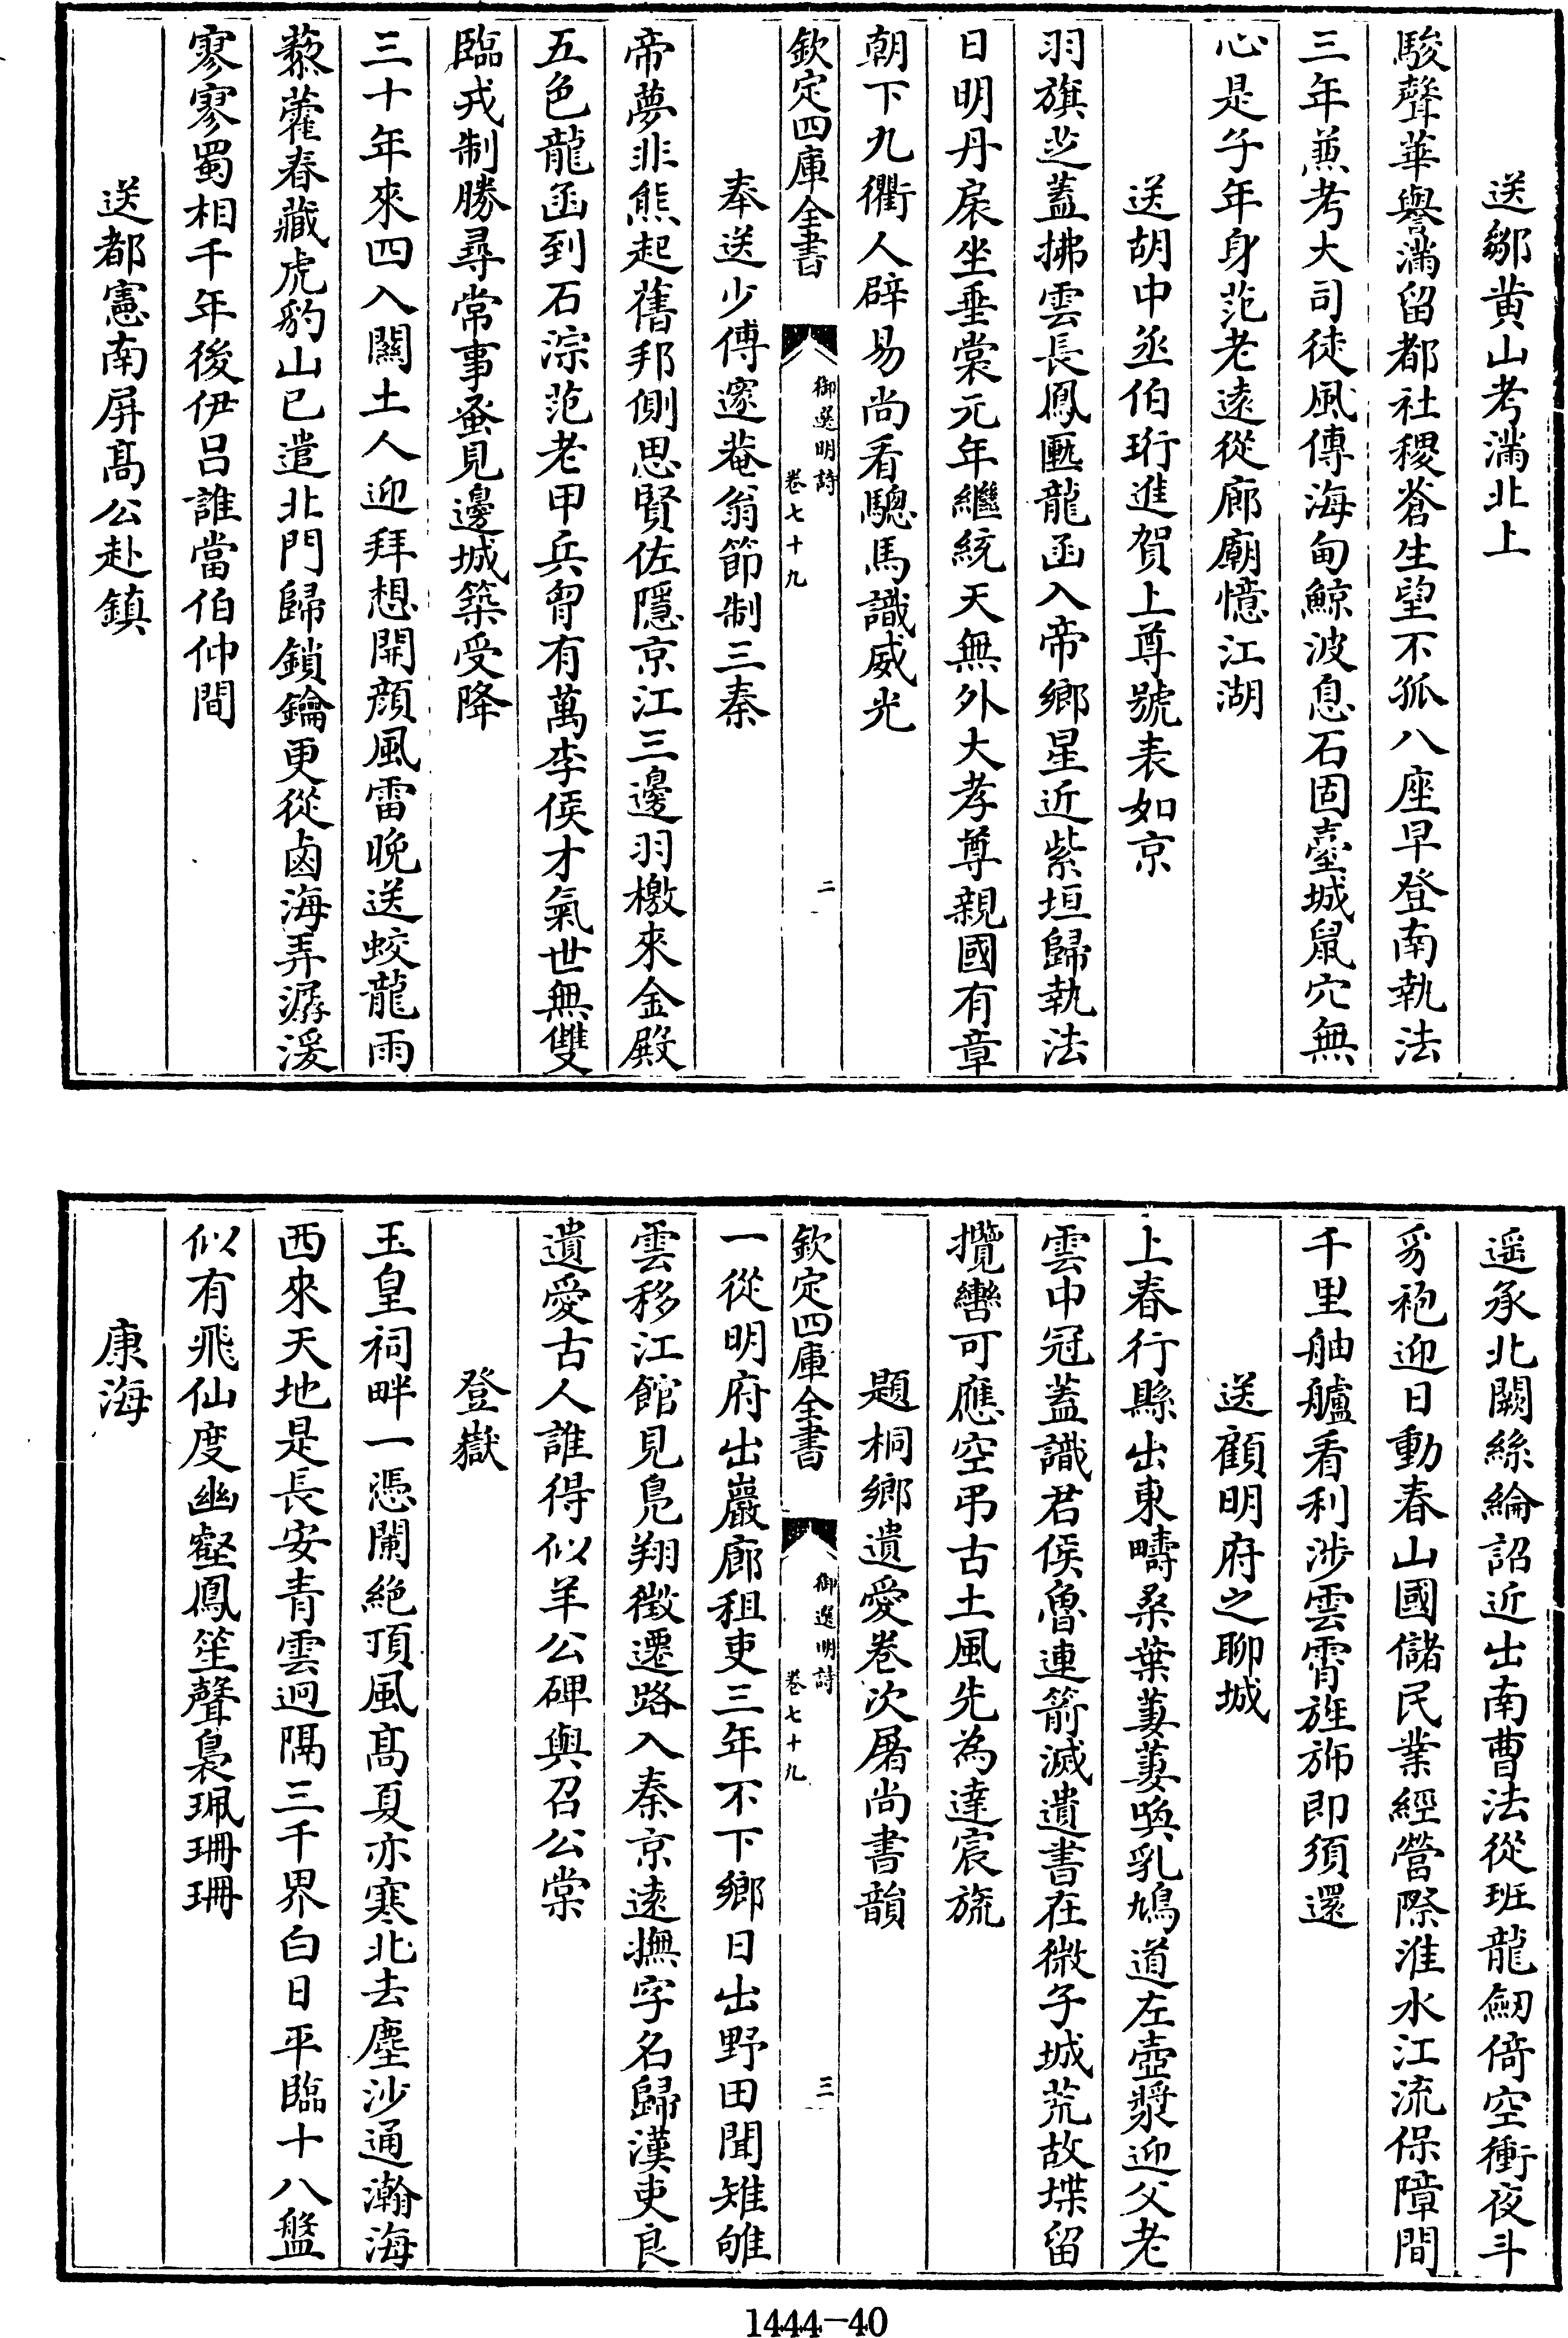 送鄒黄山考滿北上
駿聲華譽滿留都社稷蒼生望不孤八座早登南執法
三年兼考大司徒風傳海甸鯨波息石固臺城鼠穴無
心是子年身范老遠從廊廟憶江湖
送胡中丞伯珩進賀上尊號表如京
羽旗芝蓋拂雲長鳳匭龍函入帝鄉星近紫垣歸執法
日明丹扆坐垂裳元年繼統天無外大孝尊親國有章
朝下九衢人辟易尚看驄馬識威光
欽定四庫全書
御選明詩
卷七十九
二
奉送少傅邃菴翁節制三秦
帝夢非熊起舊邦側思賢佐隱京江三邊羽檄來金殿
五色龍函到石淙范老甲兵胷有萬李侯才氣世無雙
臨戎制勝尋常事蚤見邊城築受降
三十年來四入關土人迎拜想開顔風雷晚送蛟龍雨
藜藿春藏虎豹山已遣北門歸鎖鑰更從鹵海弄潺湲
寥寥蜀相千年後伊吕誰當伯仲間
送都憲南屏髙公赴鎮
遥承北闕絲綸詔近出南曹法從班龍劒倚空衝夜斗
豸袍迎日動春山國儲民業經營際淮水江流保障間
千里舳艫看利涉雲霄旌斾即須還
送顧明府之聊城
上春行縣出東疇桑葉萋萋喚乳鳩道左壺漿迎父老
雲中冠蓋識君侯魯連箭滅遺書在微子城荒故堞留
攬轡可應空弔古土風先為達宸旒
題桐鄉遺愛卷次屠尚書韻
欽定四庫全書
御選明詩
卷七十九
三
一從明府出巖廊租吏三年不下鄉日出野田聞雉雊
雲移江館見鳧翔徴遷路入秦京遠撫字名歸漢吏良
遺愛古人誰得似羊公碑與召公棠
登嶽
玉皇祠畔一憑闌絶頂風髙夏亦寒北去塵沙通瀚海
西來天地是長安青雲迥隔三千界白日平臨十八盤
似有飛仙度幽壑鳳笙聲裊珮珊珊
康海
1444-40